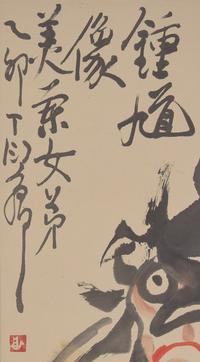 鍾馗
像
美京女弟
乙卯丁衍庸